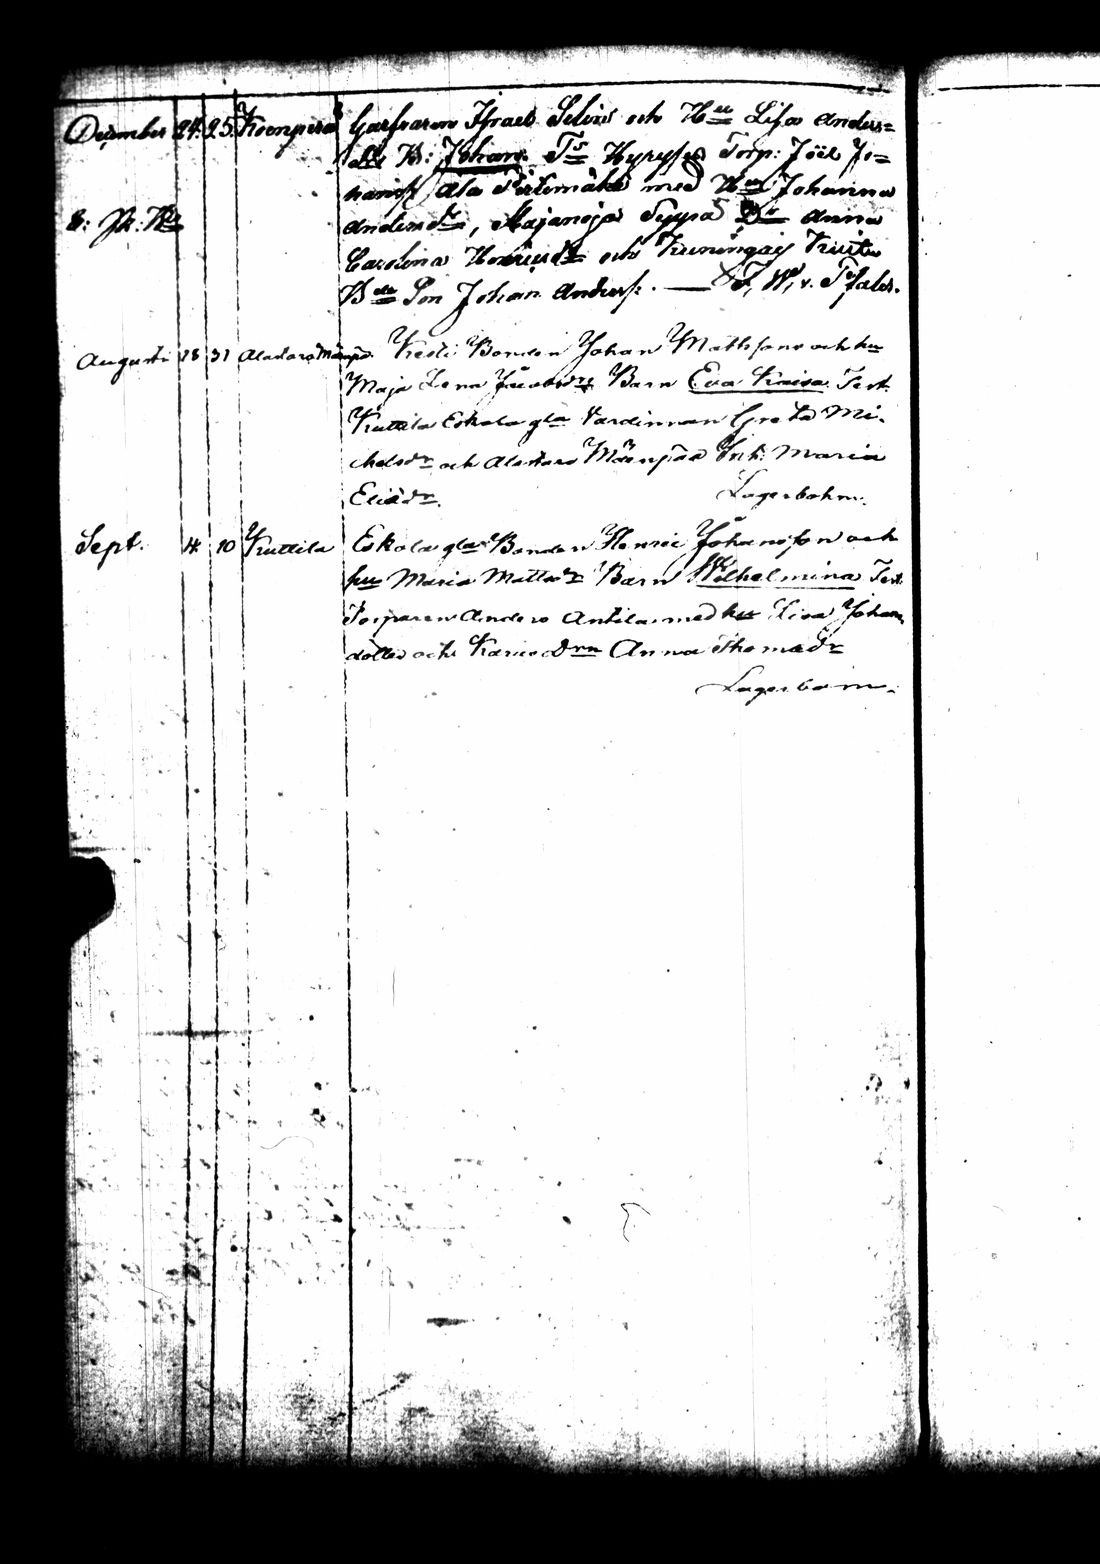 December 24. 25. Koenperä Garfvaren Israel Selin och H:u Lisa Anders=
dr B: Johan. T:s Hyrysen Torp: Joël Jo=
hanss. Ala med H:u Johanna
Andersdr, Majanoja Seppä Dr Anna
Carolina Henricsdr och Kuningas Kiutu
B:de Son Johan Anderss: — F. W. v. Pfaler.
Augusti 18 31 Alastaro Mäenpä. Kesti Bonden Johan Mattssons och hu
Maja Lena Jacobsdrs Barn Eva Kaisa Test.
Kuttila Eskola gla Värdinnan Greta Mi-
chelsdr och Alastaro Mäenpää Ink: Maria
Eliädr. Lagerbohm.
Sept. 4 10 Kuttila Eskola gla Bonden Henric Johansson och
hu Maria Mattsdr Barn Wilhelmina Test.
Torparen Anders Antila med hu Lisa Johans
dotter och Karies Drn Anna Thomædr
Lagerbom.